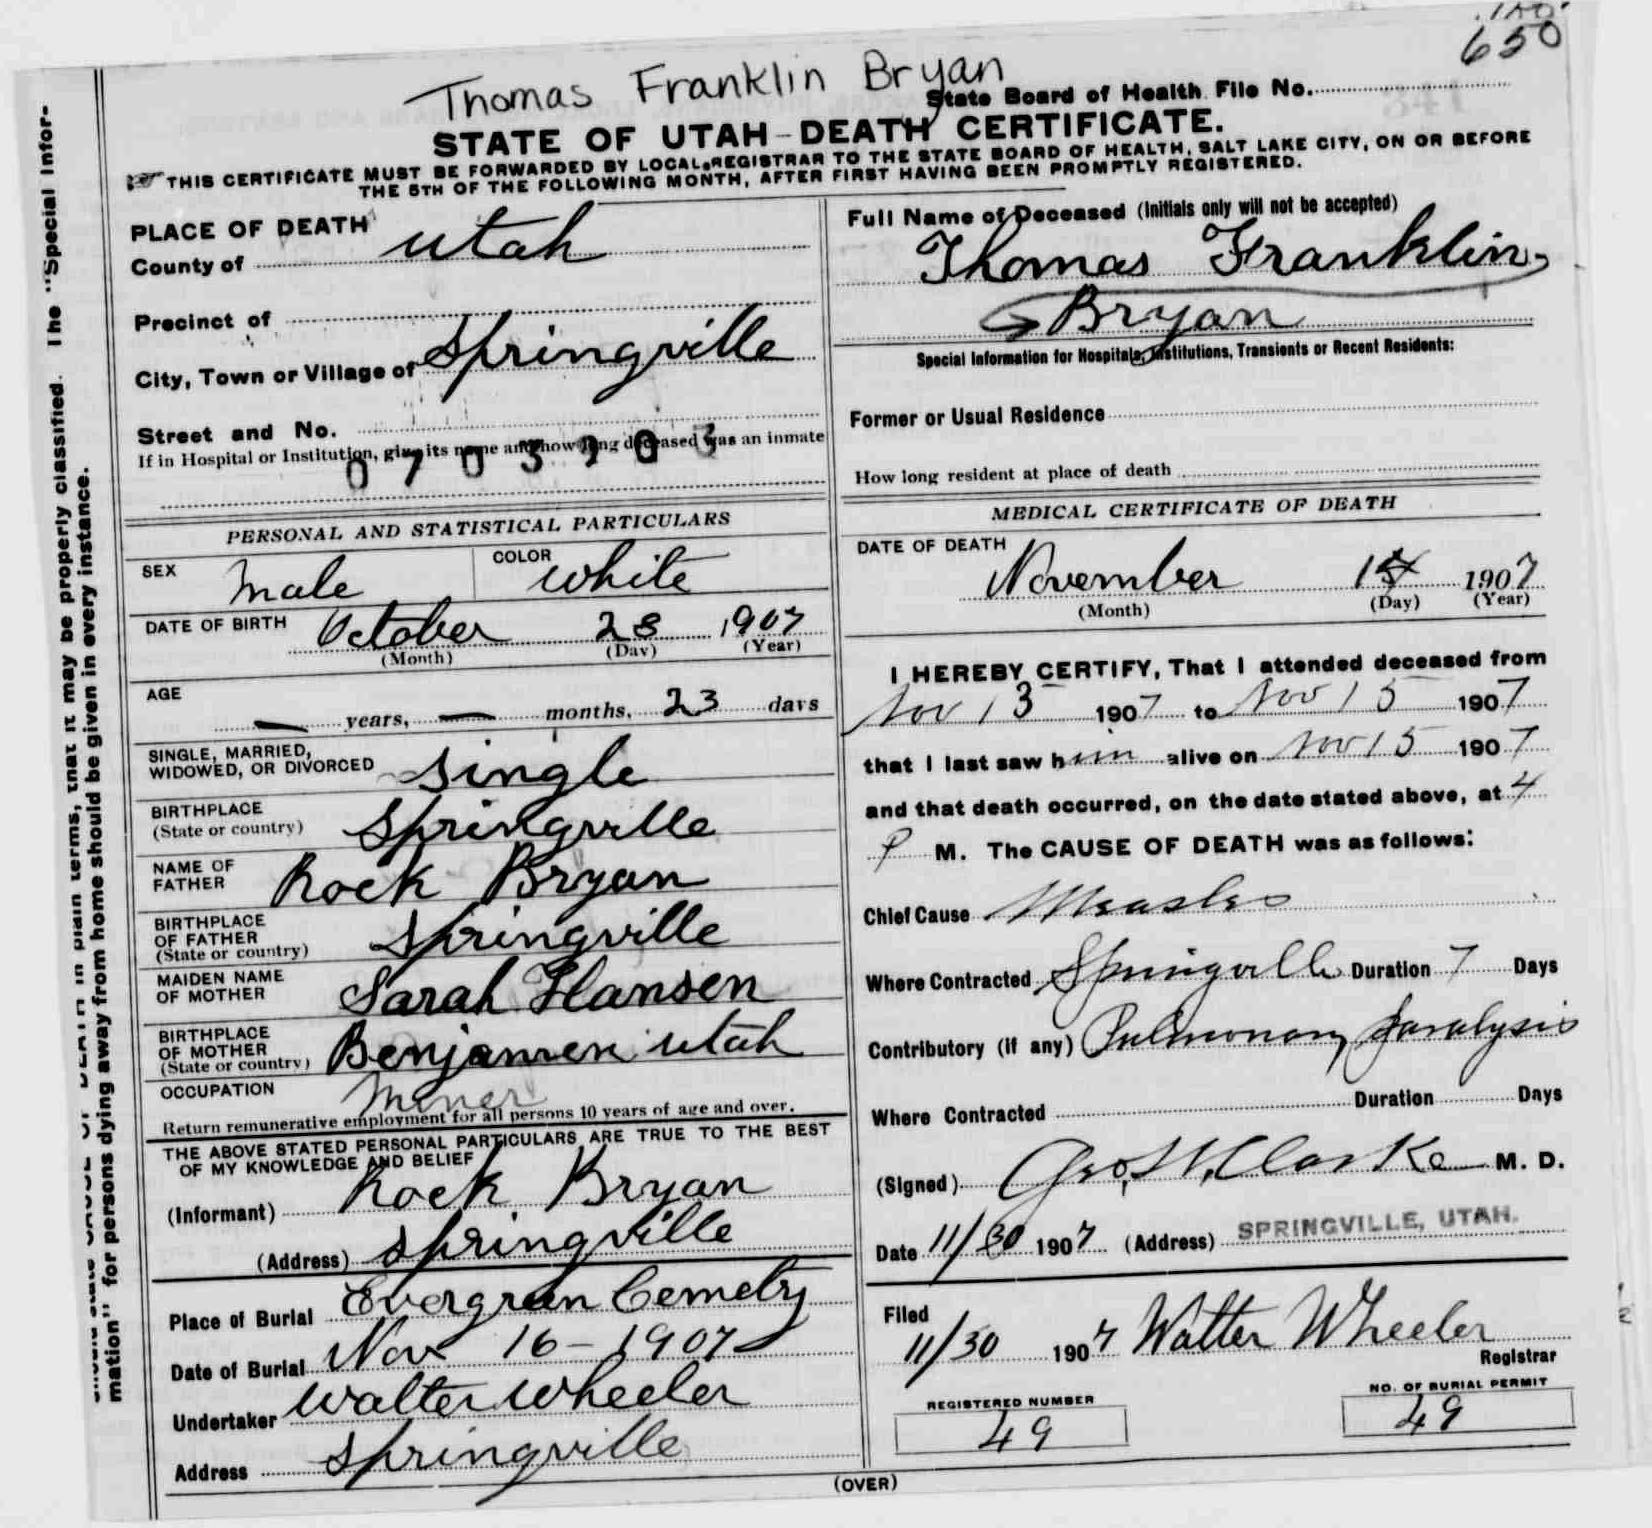 650
Thomas Franklin Bryan
State Board of Health File No.
STATE OF UTAH-DEATH CERTIFICATE.
THIS CERTIFICATE MUST BE FORWARDED BY LOCAL REGISTRAR TO THE STATE BOARD OF HEALTH, SALT LAKE CITY, ON OR BEFORE
THE 5TH OF THE FOLLOWING MONTH, AFTER FIRST HAVING BEEN PROMPTLY REGISTERED.
PLACE OF DEATH
County of Utah
Precinct of
City, Town or Village of Springville
Street and No.
If in Hospital or Institution, give its name and how long deceased was an inmate
PERSONAL AND STATISTICAL PARTICULARS
SEX Male COLOR White
DATE OF BIRTH October 23 1907
(Month) (Day) (Year)
AGE
— years, — months, 23 days
SINGLE, MARRIED,
WIDOWED, OR DIVORCED Single
BIRTHPLACE
(State or country) Springville
NAME OF
FATHER Rock Bryan
BIRTHPLACE
OF FATHER
(State or country) Springville
MAIDEN NAME
OF MOTHER Sarah Hansen
BIRTHPLACE
OF MOTHER
(State or country) Benjamen Utah
OCCUPATION Miner
Return remunerative employment for all persons 10 years of age and over.
THE ABOVE STATED PERSONAL PARTICULARS ARE TRUE TO THE BEST
OF MY KNOWLEDGE AND BELIEF
(Informant) Rock Bryan
(Address) Springville
Place of Burial Evergreen Cemetry
Date of Burial Nov 16-1907
Undertaker Walter Wheeler
Address Springville
Full Name of Deceased (Initials only will not be accepted)
Thomas Franklin
Bryan
Special Information for Hospitals, Institutions, Transients or Recent Residents:
Former or Usual Residence
How long resident at place of death
MEDICAL CERTIFICATE OF DEATH
DATE OF DEATH
November 15 1907
(Month) (Day) (Year)
I HEREBY CERTIFY, That I attended deceased from
Nov 13 1907 to Nov 15 1907
that I last saw him alive on Nov 15 1907
and that death occurred, on the date stated above, at 4
P M. The CAUSE OF DEATH was as follows:
Chief Cause Measles
Where Contracted Springville Duration 7 Days
Contributory (if any) Pulmonary paralysis
Where Contracted Duration Days
(Signed) Geo. Clarke M. D.
Date 11/30 1907 (Address) SPRINGVILLE, UTAH.
Filed
11/30 1907 Walter Wheeler
Registrar
REGISTERED NUMBER
49
NO. OF BURIAL PERMIT
49
(OVER)
The "Special Infor-
mation" for persons dying away from home should be given in every instance.
in plain terms, that it may be properly classified.